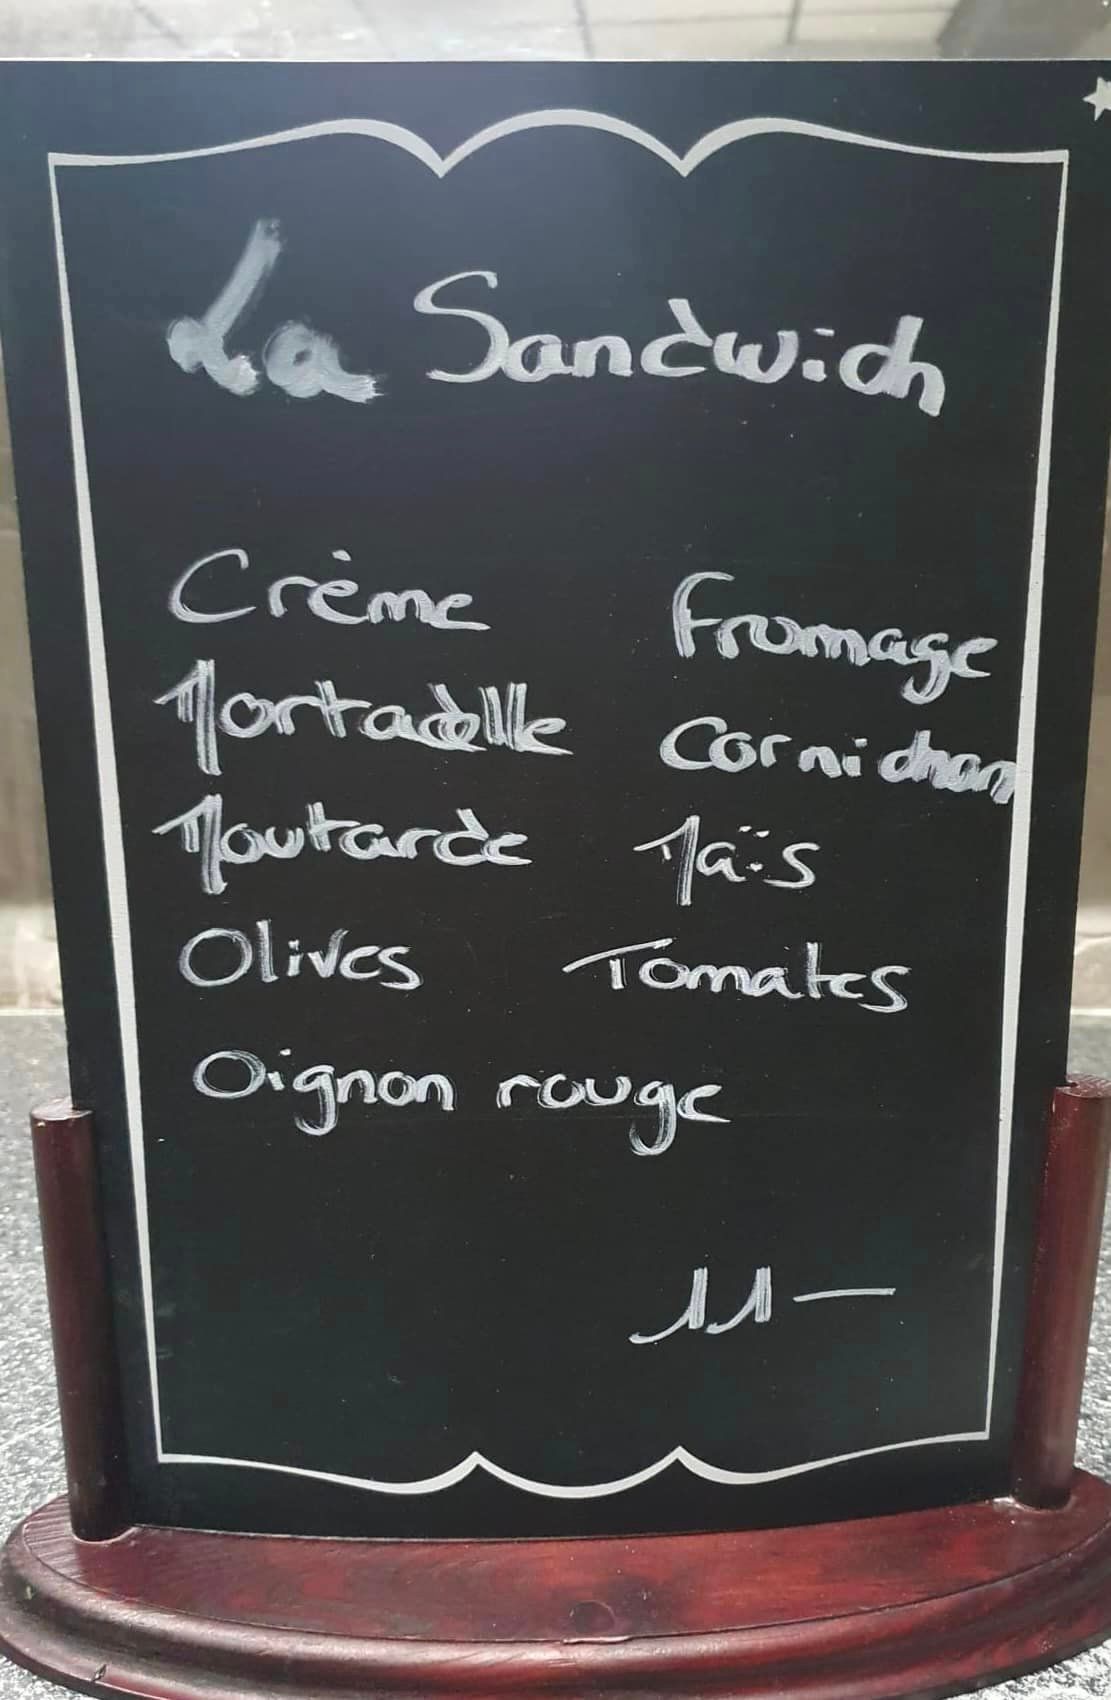 La Sandwich
Crème
Mortadelle
Moutarde
Olives
Oignon rouge
Fromage
Cornichon
Maïs
Tomates
11—